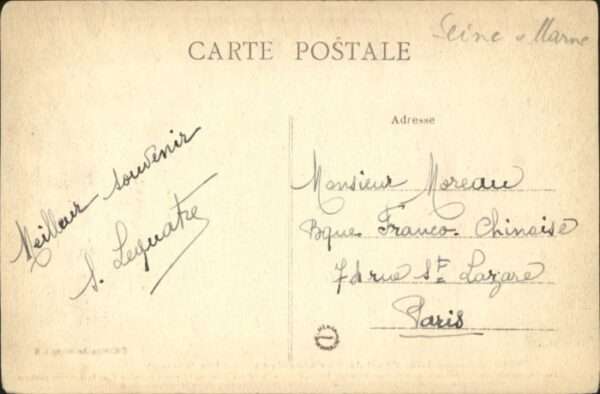 Seine et Marne
CARTE POSTALE
Adresse
Meilleur souvenir
S. Lequatre
Monsieur Moreau
Bque Franco-Chinoise
74 rue St Lazare
Paris